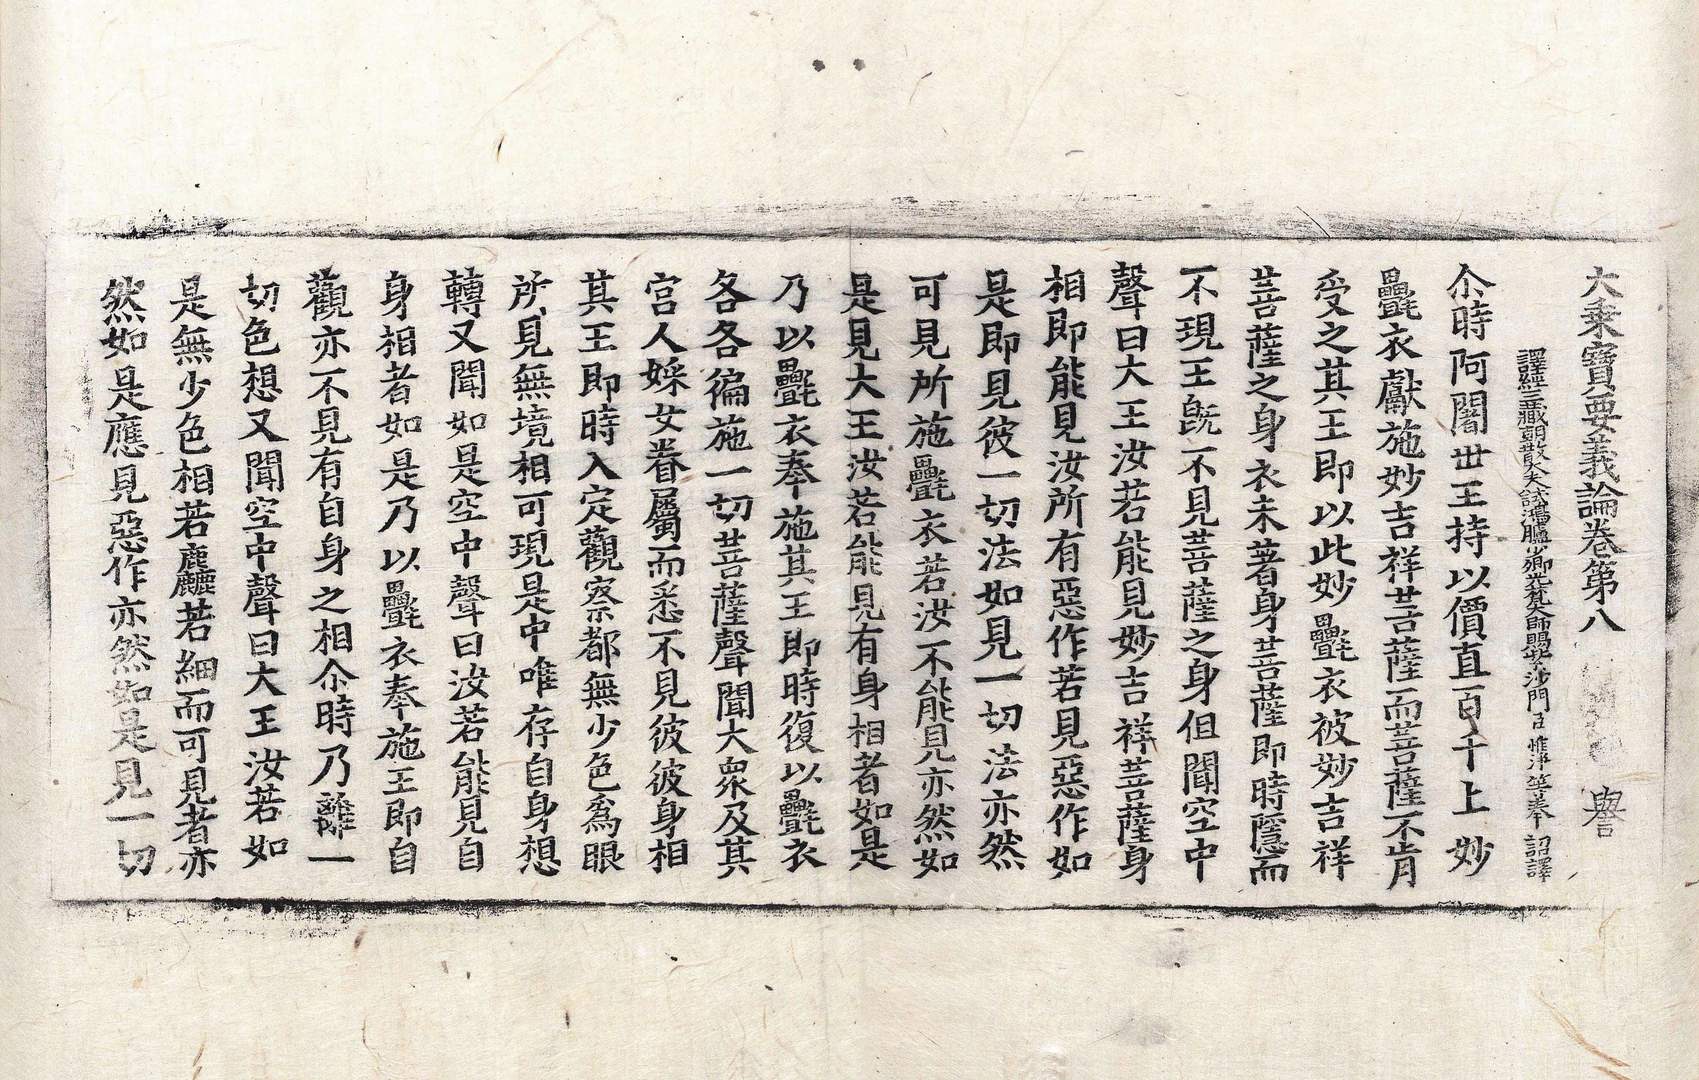 大乘寶要義論卷第八 譽
譯經三藏朝散大夫試鴻臚少卿光梵大師賜紫沙門臣惟淨等奉 詔譯
尒時阿闍世王持以價直百千上妙
㲲衣獻施妙吉祥菩薩而菩薩不肯
受之其王即以此妙㲲衣被妙吉祥
菩薩之身衣未著身菩薩即時隱而
不現王旣不見菩薩之身但聞空中
聲曰大王汝若能見妙吉祥菩薩身
相即能見汝所有惡作若見惡作如
是即見彼一切法如見一切法亦然
可見所施㲲衣若汝不能見亦然如
是見大王汝若能見有身相者如是
乃以㲲衣奉施其王即時復以㲲衣
各各徧施一切菩薩聲聞大衆及其
宮人婇女眷屬而悉不見彼彼身相
其王即時入定觀察都無少色爲眼
所見無境相可現是中唯存自身想
轉又聞如是空中聲曰汝若能見自
身相者如是乃以㲲衣奉施王即自
觀亦不見有自身之相尒時乃離一
切色想又聞空中聲曰大王汝若如
是無少色相若麤若細而可見者亦
然如是應見惡作亦然如是見一切